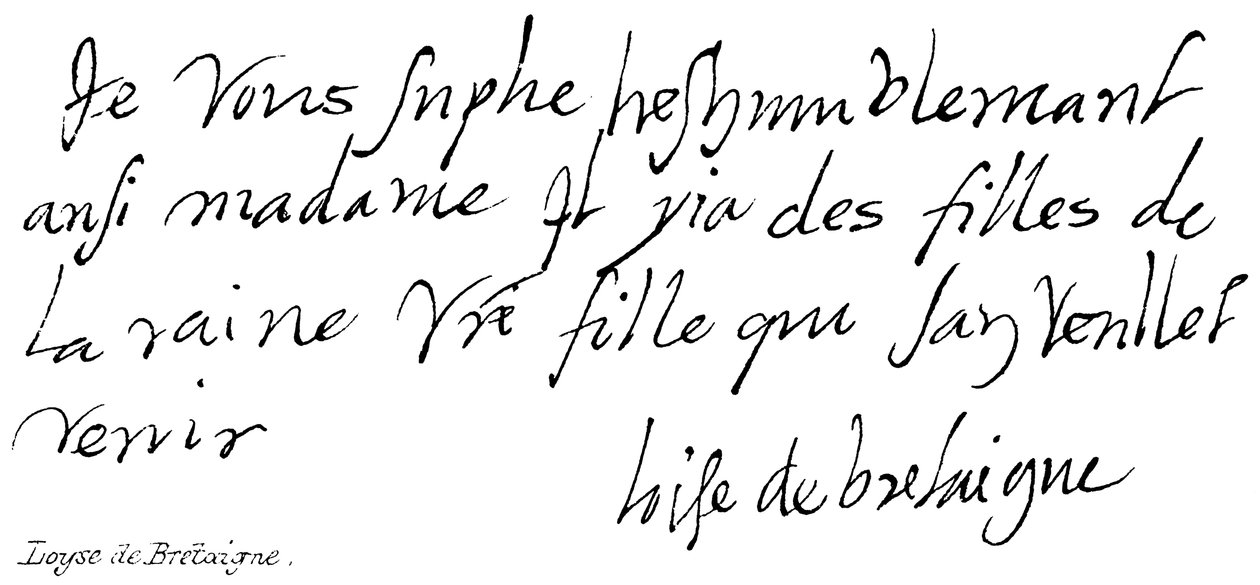 Je vous suplie treshumblemant
ansi madame Il y ia des filles de
La raine Vre fille qui san veullet
venir
loise de bretaigne
Loyse de Bretaigne.